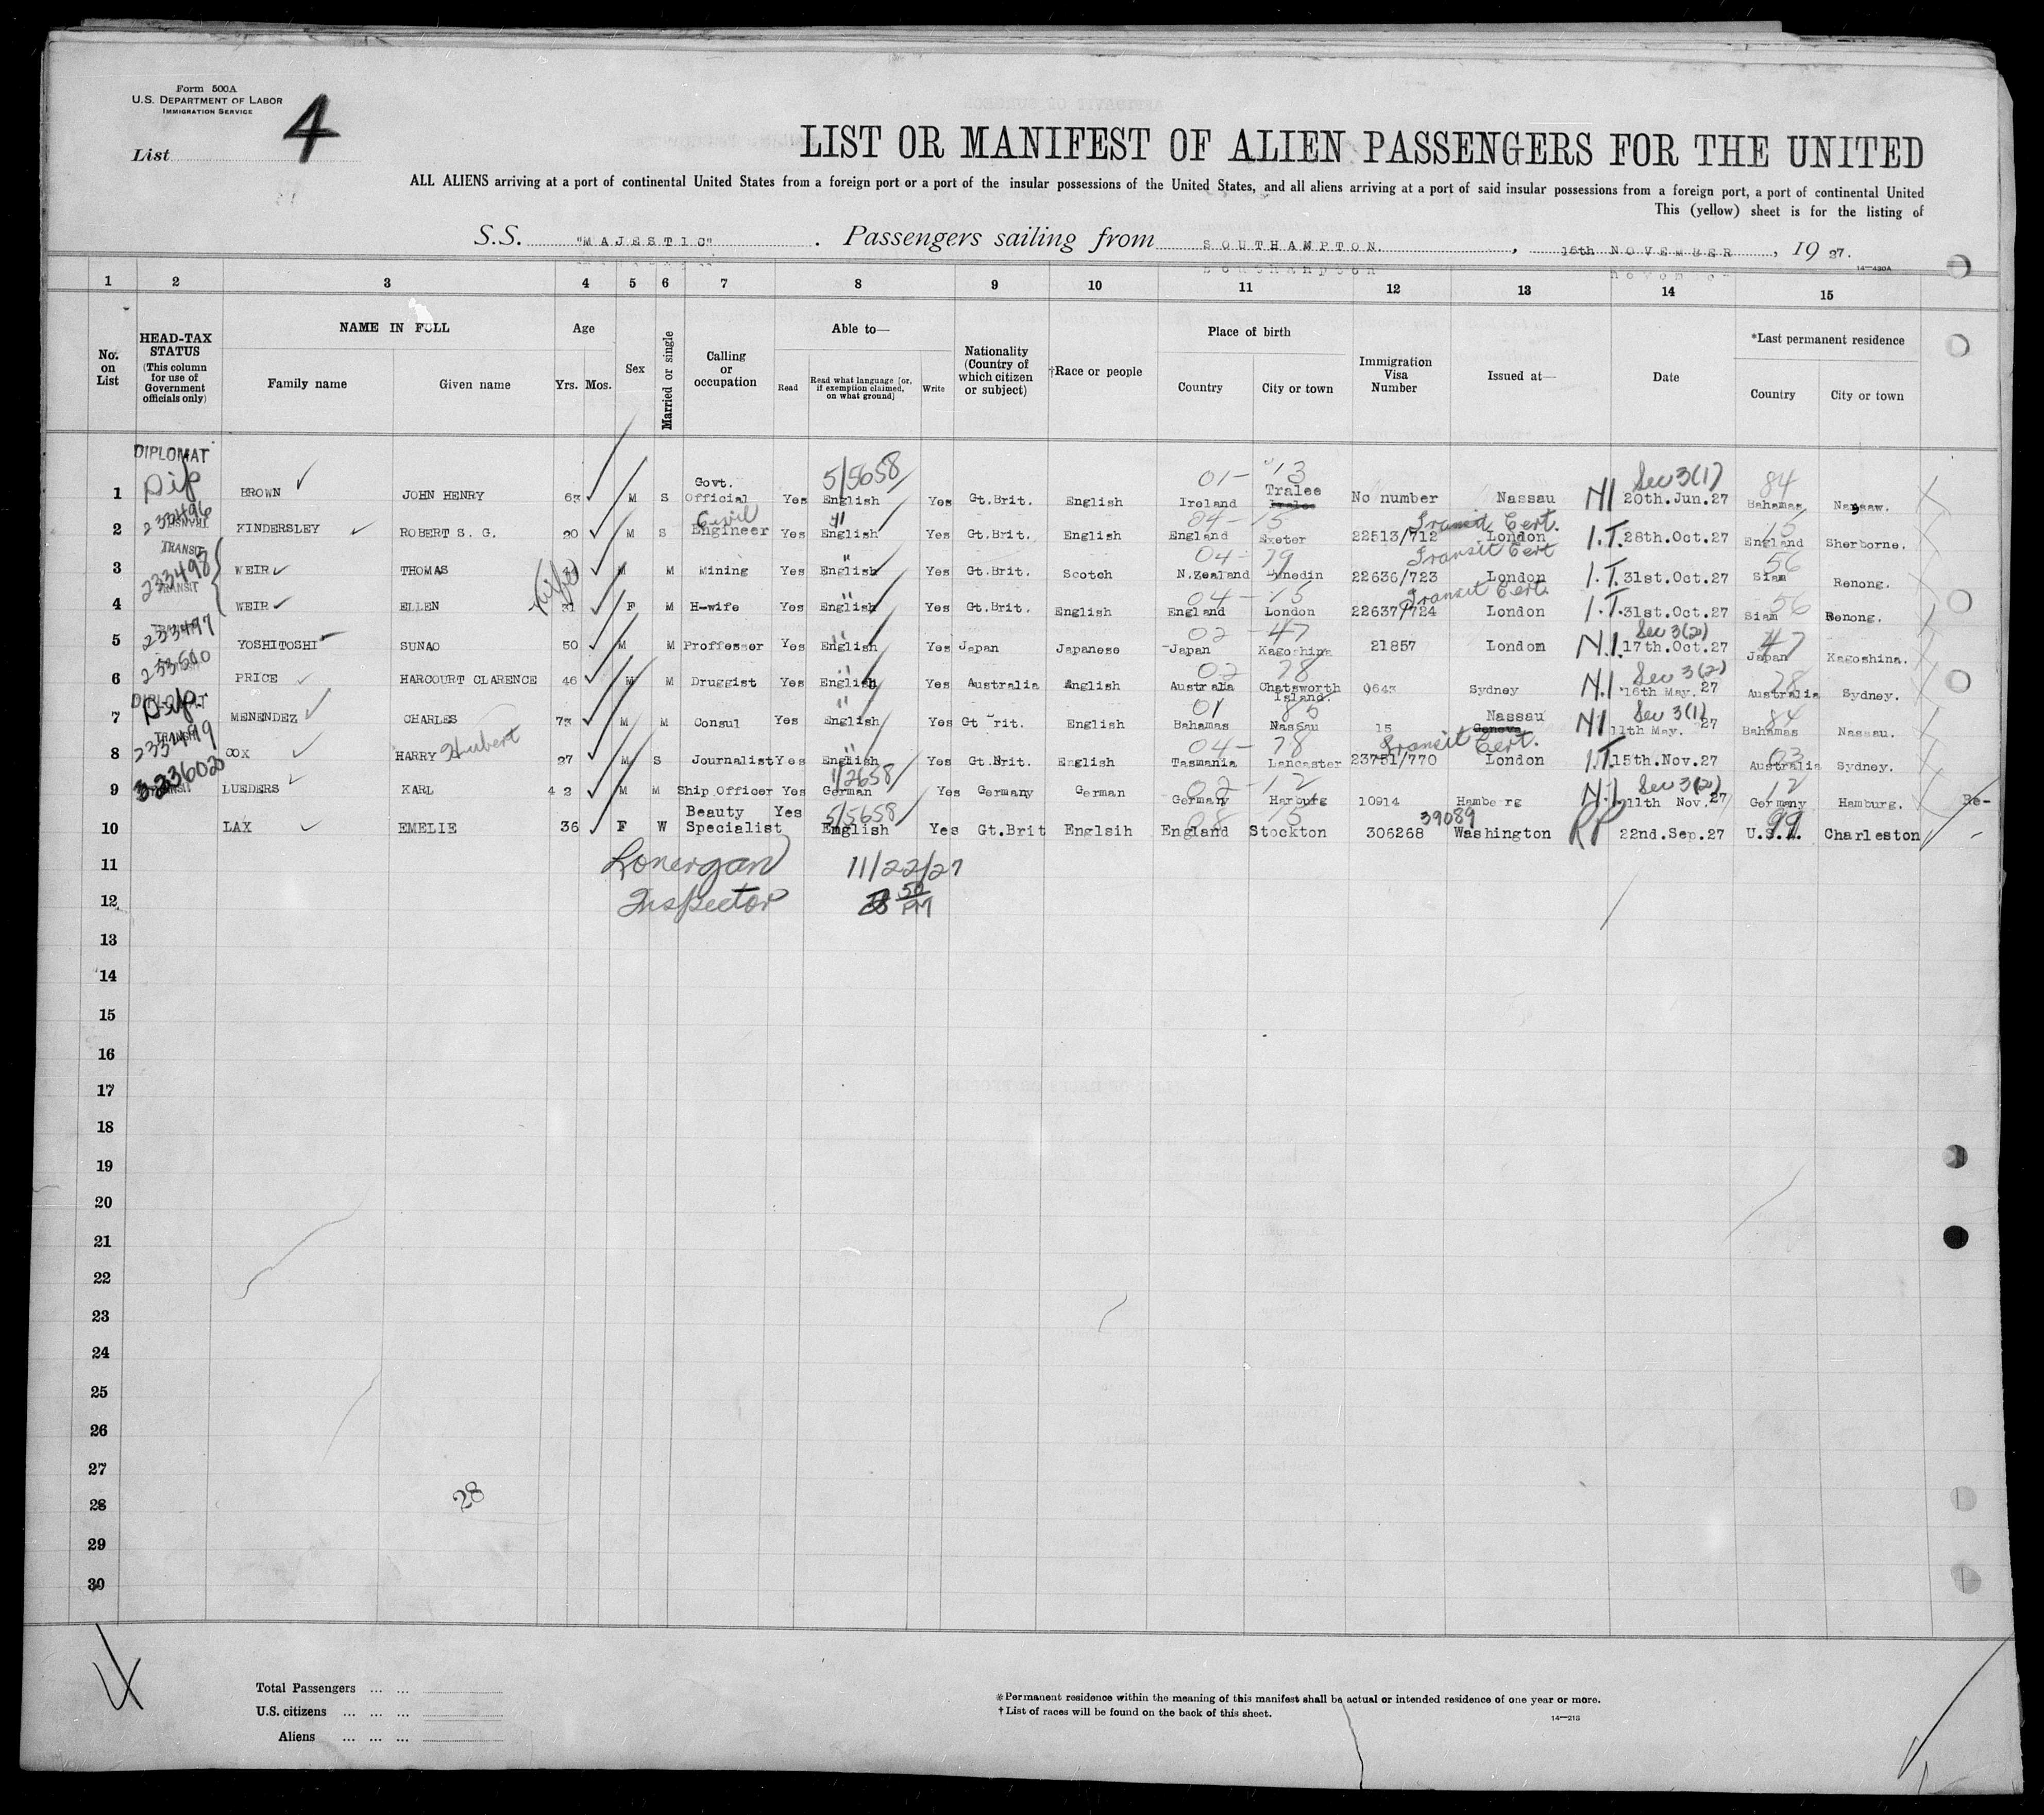 Form 500A
U.S. DEPARTMENT OF LABOR
IMMIGRATION SERVICE
List 4
LIST OR MANIFEST OF ALIEN PASSENGERS FOR THE UNITED
ALL ALIENS arriving at a port of continental United States from a foreign port or a port of the insular possessions of the United States, and all aliens arriving at a port of said insular possessions from a foreign port, a port of continental United
This (yellow) sheet is for the listing of
S.S. "MAJESTIC" . Passengers sailing from SOUTHAMPTON. , 16th NOVEMBER , 19 27.
14—430A
1 2 3 4 5 6 7 8 9 10 11 12 13 14 15
No. on List
HEAD-TAX STATUS (This column for use of Government officials only)
NAME IN FULL
Family name Given name
Age
Yrs. Mos.
Sex
Married or single
Calling or occupation
Able to—
Read
Read what language [or, if exemption claimed, on what ground]
Write
Nationality (Country of which citizen or subject)
†Race or people
Place of birth
Country City or town
Immigration Visa Number
Issued at—
Date
*Last permanent residence
Country City or town
DIPLOMAT Govt. 5/5658 01- 13 Tralee Sec 3(1) 84
1 Dip BROWN JOHN HENRY 63 M S Official Yes English Yes Gt.Brit. English Ireland Tralee No number Nassau NI 20th.Jun.27 Bahamas Nassaw.
233496 TRANSIT Civil 04-15 Transit Cert. 15
2 KINDERSLEY ROBERT S. G. 20 M S Engineer Yes English Yes Gt.Brit. English England Exeter 22513/712 London I.T. 28th.Oct.27 England Sherborne.
TRANSIT 233498 " 04-79 Transit Cert 56
3 WEIR THOMAS M M Mining Yes English Yes Gt.Brit. Scotch N.Zealand Dunedin 22636/723 London I.T. 31st.Oct.27 Siam Renong.
TRANSIT wife " 04-15 Transit Cert. 56
4 WEIR ELLEN 31 F M H-wife Yes English Yes Gt.Brit. English England London 22637/724 London I.T. 31st.Oct.27 Siam Renong.
233497 " 02-47 Sec 3(2) 47
5 YOSHITOSHI SUNAO 50 M M Proffesser Yes English Yes Japan Japanese Japan Kagoshina 21857 London N.I. 17th.Oct.27 Japan Kagoshina.
233500 " 02 78 Sec 3(2) 78
6 PRICE HARCOURT CLARENCE 46 M M Druggist Yes English Yes Australia English Australia Chatsworth Island. 0643 Sydney N.I 16th May. 27 Australia Sydney.
DIPLOMAT Dip. " 01 85 Nassau Sec 3(1) 84
7 MENENDEZ CHARLES 73 M M Consul Yes English Yes Gt rit. English Bahamas Nassau 15 Geneva NI 11th May. 27 Bahamas Nassau.
TRANSIT 233499 Hubert " 04-78 Transit Cert. 03
8 COX HARRY 27 M S Journalist Yes English Yes Gt.Brit. English Tasmania Lancaster 23751/770 London I.T. 15th.Nov.27 Australia Sydney.
1/2658 02-12 Sec 3(2) 12
9 LUEDERS KARL 42 M M Ship Officer Yes German Yes Germany German Germany Harburg 10914 Hamberg N.I. 11th Nov. 27 Germany Hamburg. Re-
Beauty 5/5658 08 15 39089 99
10 LAX EMELIE 36 F W Specialist Yes English Yes Gt.Brit Englsih England Stockton 306268 Washington RP 22nd.Sep.27 U.S.A. Charleston -
11 Lonergan 11/22/27
12 Inspector 50 PM
13
14
15
16
17
18
19
20
21
22
23
24
25
26
27
28 28
29
30
4
Total Passengers ... ...
U.S. citizens ... ... ...
Aliens ... ... ...
*Permanent residence within the meaning of this manifest shall be actual or intended residence of one year or more.
†List of races will be found on the back of this sheet.
14—213